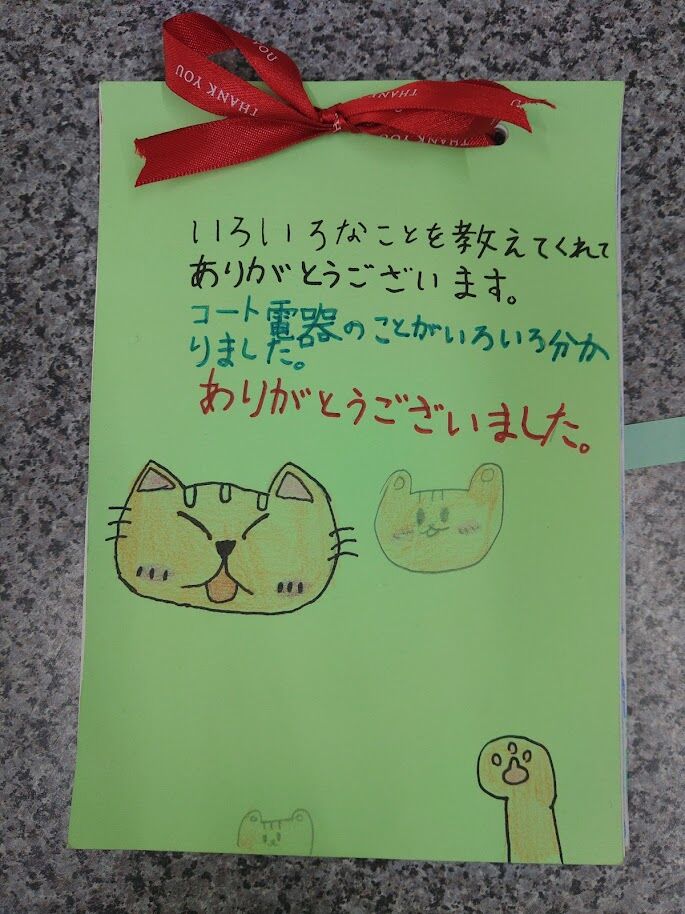 THANK YOU
THANK YOU
THANK YOU
いろいろなことを教えてくれて
ありがとうございます。
コート電器のことがいろいろ分か
りました。
ありがとうございました。